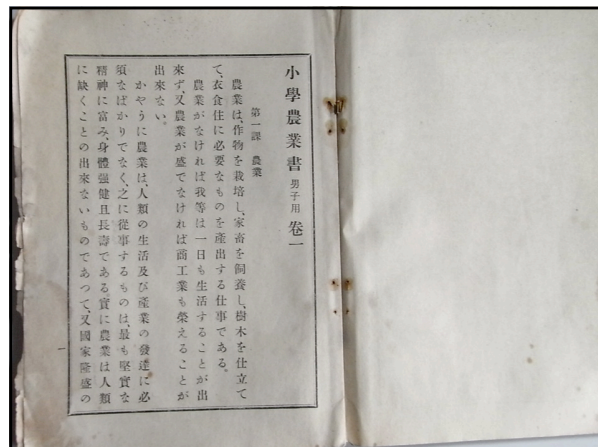 小學農業書 男子用 卷一
第一課 農業
農業は、作物を栽培し、家畜を飼養し、樹木を仕立て
て、衣食住に必要なものを產出する仕事である。
農業がなければ我等は一日も生活することが出
來ず、又農業が盛でなければ商工業も榮えることが
出來ない。
かやうに農業は、人類の生活及び產業の發達に必
須なばかりでなく、之に從事するものは、最も堅實な
精神に富み、身體強健且長壽である。實に農業は人類
に缺くことの出來ないものであつて、又國家隆盛の
一